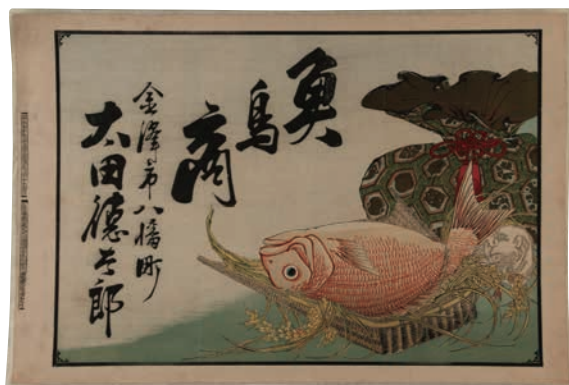 魚鳥商
金澤市八幡町
太田徳郎